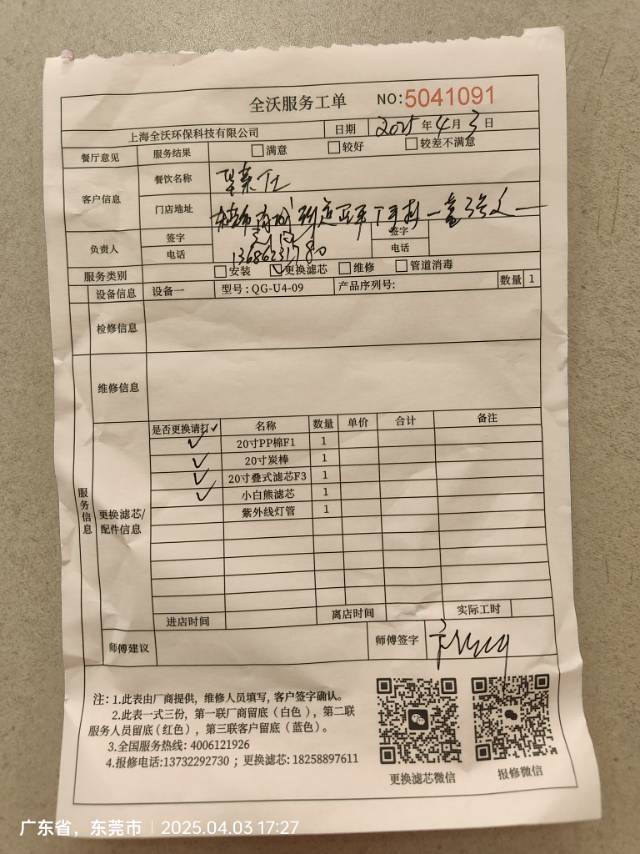 全沃服务工单 NO:5041091
上海全沃环保科技有限公司 日期 2025 年 4 月 3 日
餐厅意见 服务结果 □满意 □较好 □较差不满意
客户信息 餐饮名称
门店地址
负责人 签字 签字
电话 电话
服务类别 □安装 ☑更换滤芯 □维修 □管道消毒
设备信息 设备一 型号:QG-U4-09 产品序列号: 数量 1
检修信息
维修信息
服务信息
更换滤芯/配件信息
是否更换请打✓ 名称 数量 单价 合计 备注
✓ 20寸PP棉F1 1
✓ 20寸炭棒 1
✓ 20寸叠式滤芯F3 1
✓ 小白熊滤芯 1
紫外线灯管 1
进店时间 离店时间 实际工时
师傅建议 师傅签字
注: 1.此表由厂商提供, 维修人员填写, 客户签字确认。
2.此表一式三份, 第一联厂商留底 (白色) , 第二联
服务人员留底(红色) , 第三联客户留底 (蓝色) 。
3.全国服务热线: 4006121926
4.报修电话:13732292730 ; 更换滤芯: 18258897611
更换滤芯微信 报修微信
广东省, 东莞市 | 2025.04.03 17:27